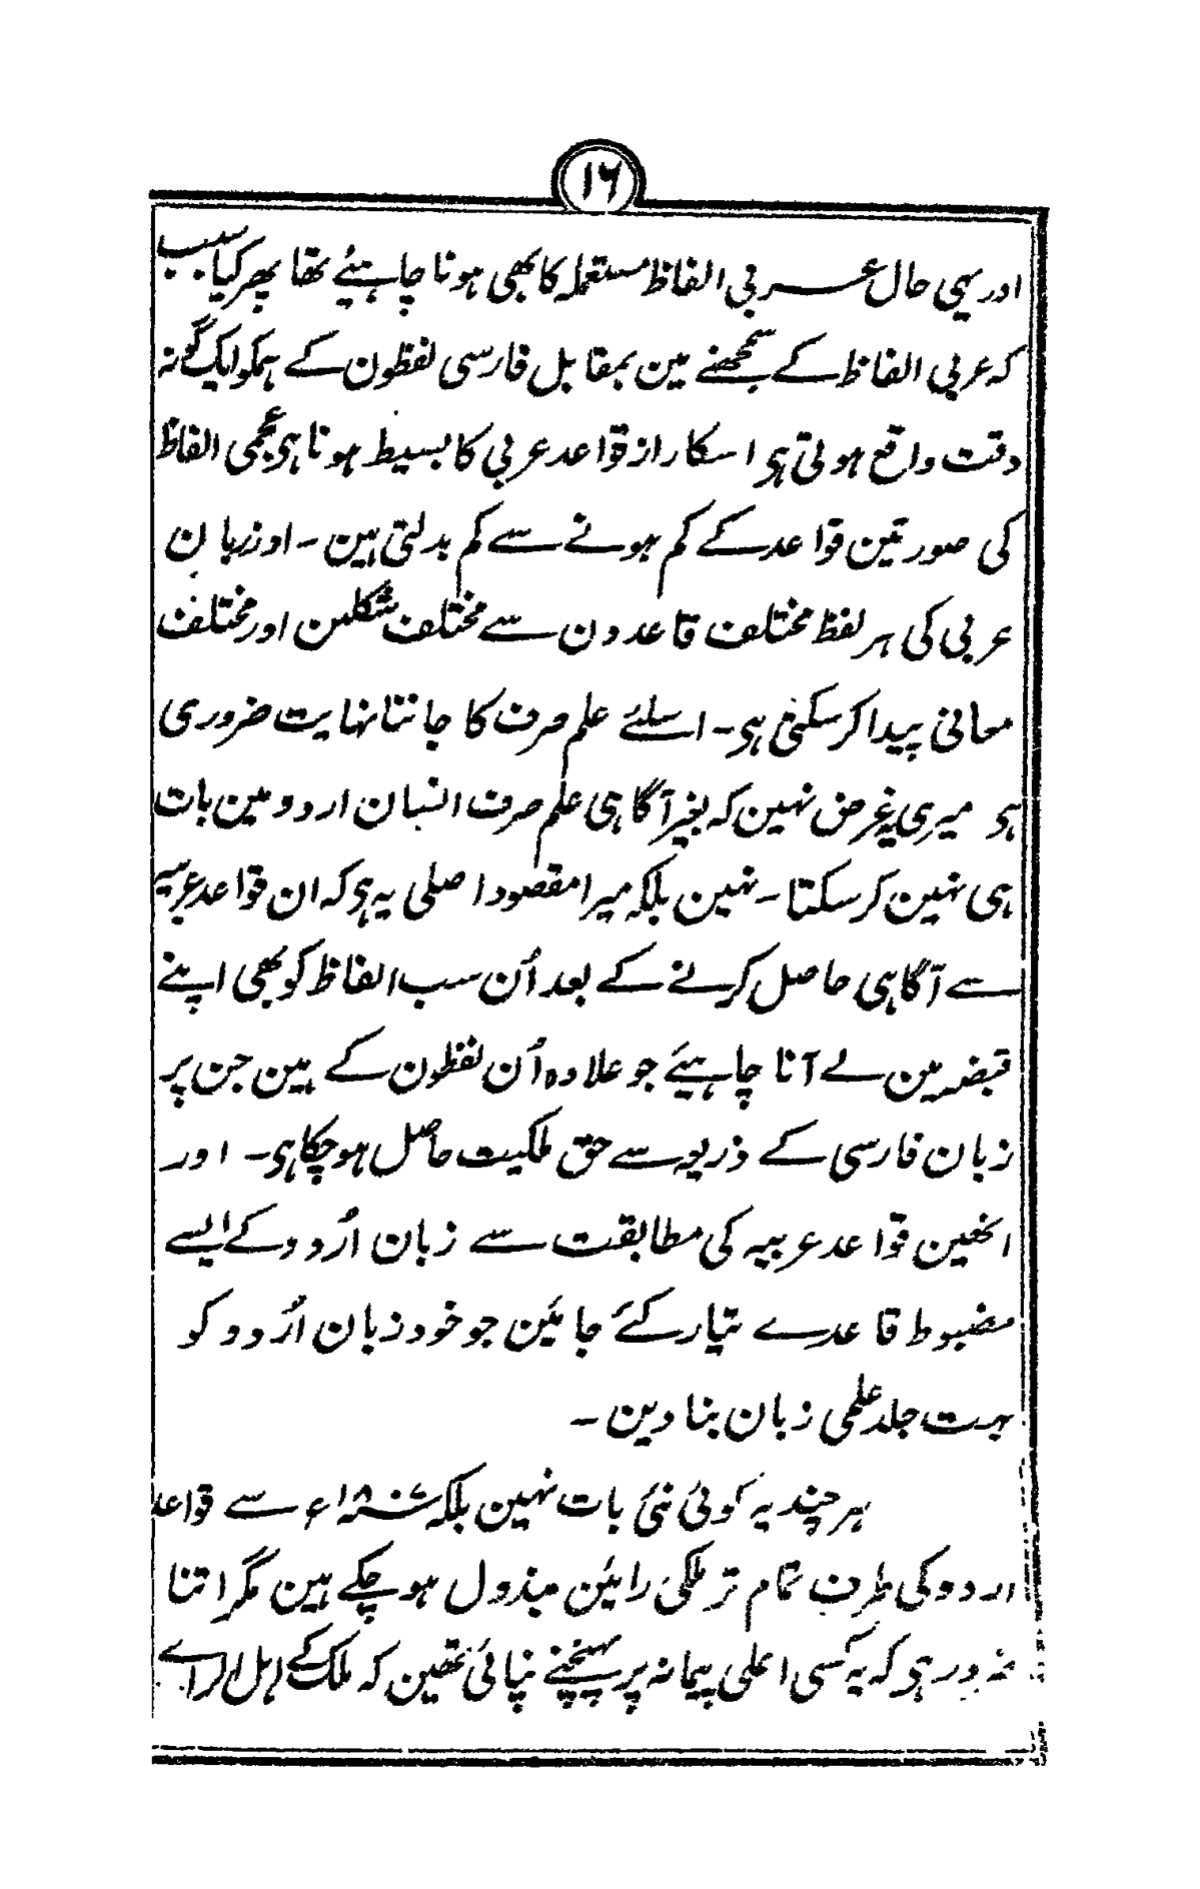 ۱۶
اور یہی حال عربی الفاظ مستعملہ کا بھی ہونا چاہیئے تھا پھر کیا سبب
کہ عربی الفاظ کے سمجھنے مین بمقابل فارسی لفظون کے ہمکو ایک گونہ
دقت واقع ہوتی ہی اسکا راز قواعد عربی کا بسیط ہونا ہی عجمی الفاظ
کی صورتین قواعد کے کم ہونے سے کم بدلتی ہین ۔ اور زبان
عربی کی ہر لفظ مختلف قاعدون سے مختلف شکلین اور مختلف
معانی پیدا کر سکتی ہی ۔ اسلئے علم صرف کا جاننا نہایت ضروری
ہی میری یہ غرض نہین کہ بغیر آگاہی علم صرف انسان اردو مین بات
ہی نہین کر سکتا ۔ نہین بلکہ میرا مقصود اصلی یہ ہی کہ ان قواعد عربیہ
سے آگاہی حاصل کرنے کے بعد اُن سب الفاظ کو بھی اپنے
قبضہ مین لے آنا چاہیئے جو علاوہ اُن لفظون کے ہین جن پر
زبان فارسی کے ذریعہ سے حق ملکیت حاصل ہو چکا ہی ۔ اور
انھین قواعد عربیہ کی مطابقت سے زبان اُردو کے ایسے
مضبوط قاعدے تیار کئے جائین جو خود زبان اُردو کو
بہت جلد علمی زبان بنا دین ۔
ہر چند یہ کوئی نئی بات نہین بلکہ ۱۸۰۷ء سے قواعد
اردو کی طرف تمام تر ملکی رائین مبذول ہو چکے ہین مگر اتنا
ضرور ہی کہ یہ کسی اعلی پیمانہ پر پہنچنے نپائی تھین کہ ملک کے اہل الراے